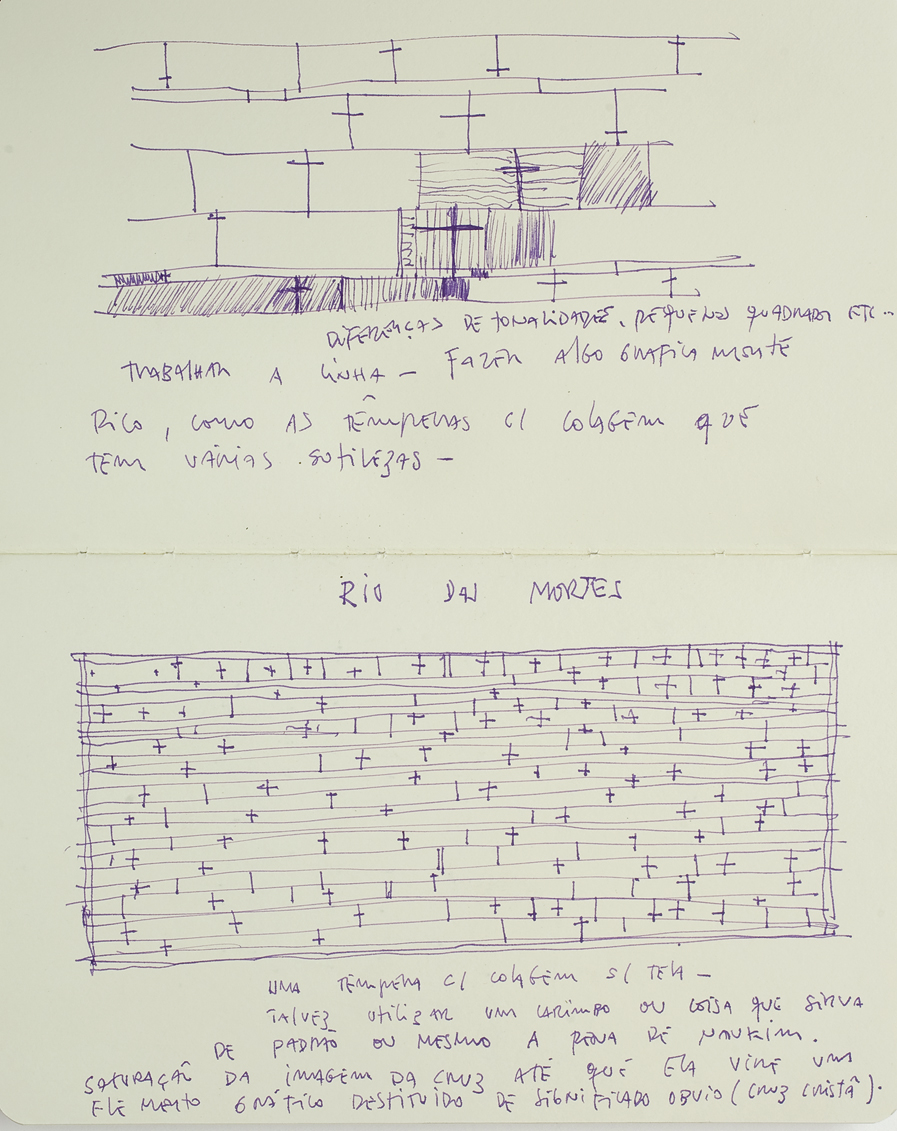 DIFERENÇAS DE TONALIDADES, PEQUENOS QUADRADOS ETC...
TRABALHAR A LINHA — FAZER ALGO GRAFICAMENTE
RICO, COMO AS TÊMPERAS C/ COLAGEM QUE
TEM VÁRIAS SUTILEZAS —
RIO DAS MORTES
UMA TEMPERA C/ COLAGEM S/ TELA —
TALVEZ UTILIZAR UM CARIMBO OU COISA QUE SIRVA
DE PADRÃO OU MESMO A PENA DE NANKIM.
SATURAÇÃO DA IMAGEM DA CRUZ ATÉ QUE ELA VIRE UM
ELEMENTO GRÁFICO DESTITUIDO DE SIGNIFICADO OBVIO (CRUZ CRISTÃ).